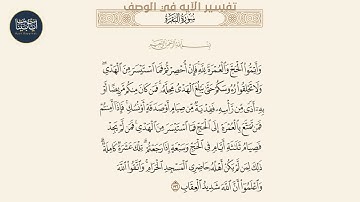 تفسير الآيه في الوصف
سُورَةُ البَقَرَةِ
بِسْمِ اللَّهِ الرَّحْمَٰنِ الرَّحِيمِ
وَأَتِمُّوا الْحَجَّ وَالْعُمْرَةَ لِلَّهِ فَإِنْ أُحْصِرْتُمْ فَمَا اسْتَيْسَرَ مِنَ الْهَدْيِ ۖ
وَلَا تَحْلِقُوا رُءُوسَكُمْ حَتَّىٰ يَبْلُغَ الْهَدْيُ مَحِلَّهُ ۚ فَمَن كَانَ مِنكُم مَّرِيضًا أَوْ
بِهِ أَذًى مِّن رَّأْسِهِ فَفِدْيَةٌ مِّن صِيَامٍ أَوْ صَدَقَةٍ أَوْ نُسُكٍ ۚ فَإِذَا أَمِنتُمْ
فَمَن تَمَتَّعَ بِالْعُمْرَةِ إِلَى الْحَجِّ فَمَا اسْتَيْسَرَ مِنَ الْهَدْيِ ۚ فَمَن لَّمْ يَجِدْ
فَصِيَامُ ثَلَاثَةِ أَيَّامٍ فِي الْحَجِّ وَسَبْعَةٍ إِذَا رَجَعْتُمْ ۗ تِلْكَ عَشَرَةٌ كَامِلَةٌ ۗ
ذَٰلِكَ لِمَن لَّمْ يَكُنْ أَهْلُهُ حَاضِرِي الْمَسْجِدِ الْحَرَامِ ۚ وَاتَّقُوا اللَّهَ
وَاعْلَمُوا أَنَّ اللَّهَ شَدِيدُ الْعِقَابِ ١٩٦